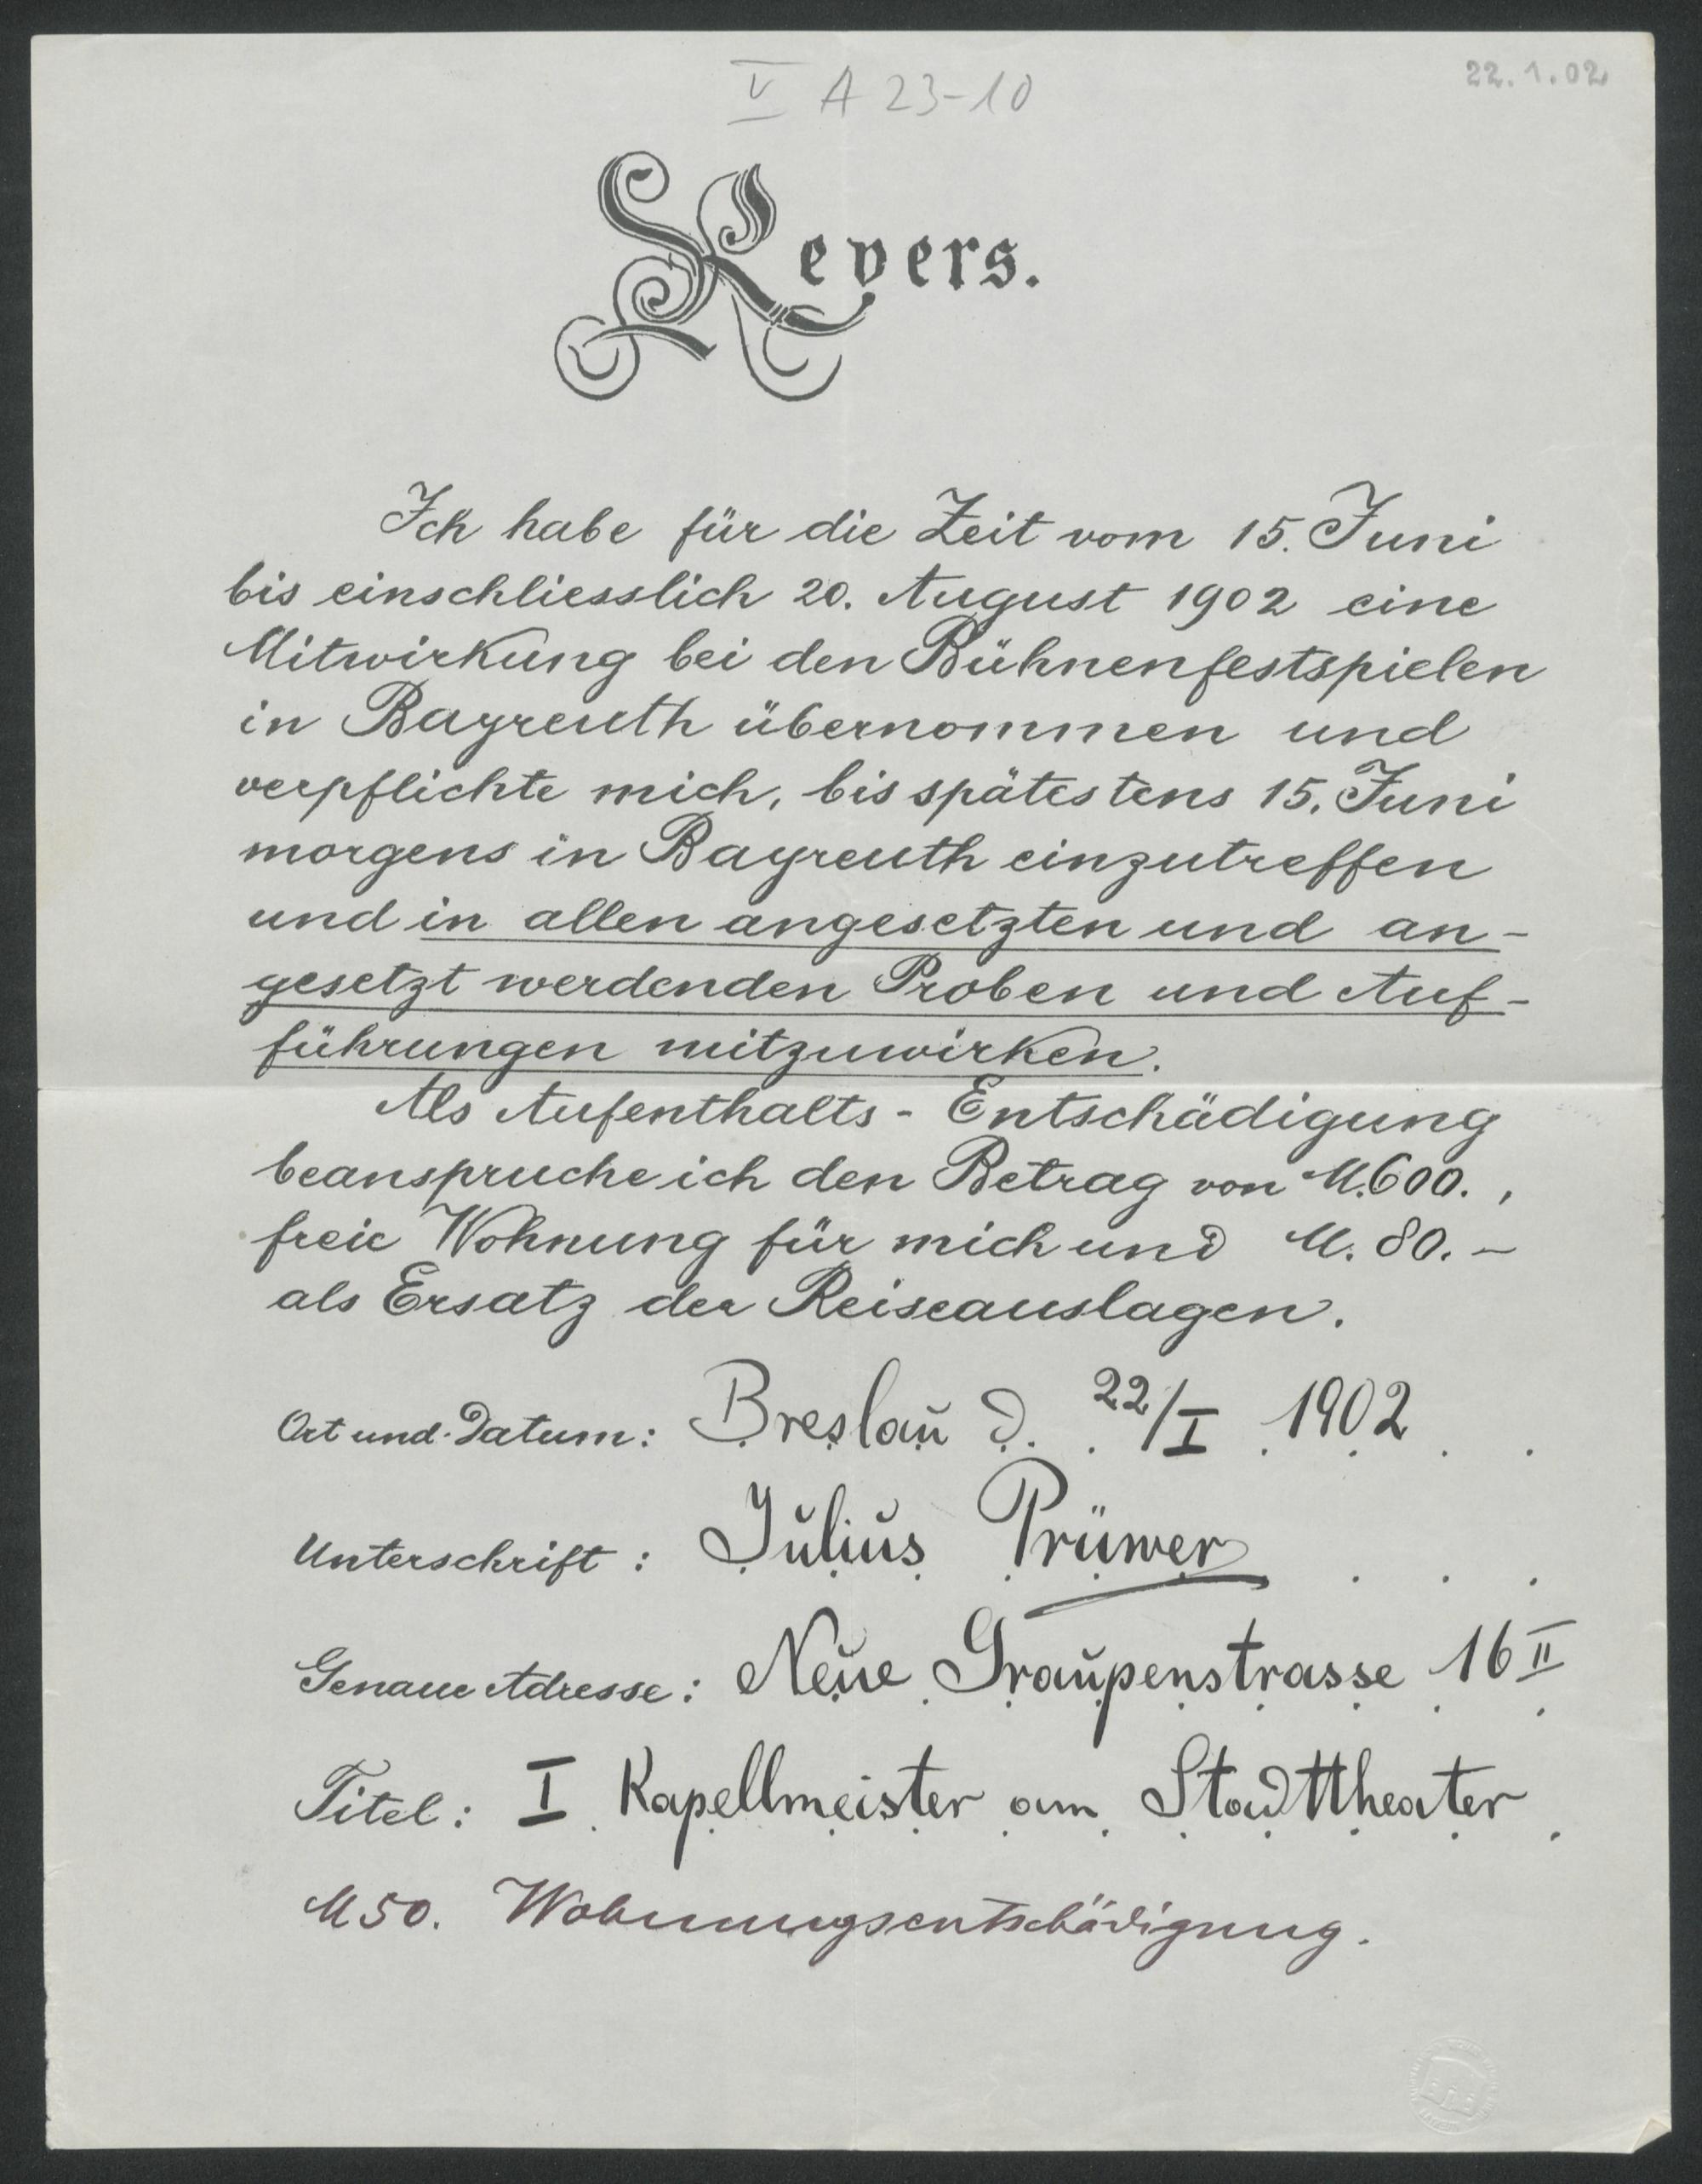 V A 23-10
22.1.02
Revers.
Ich habe für die Zeit vom 15. Juni
bis einschliesslich 20. August 1902 eine
Mitwirkung bei den Bühnenfestspielen
in Bayreuth übernommen und
verpflichte mich, bis spätestens 15. Juni
morgens in Bayreuth einzutreffen
und in allen angesetzten und an-
gesetzt werdenden Proben und Auf-
führungen mitzuwirken.
Als Aufenthalts-Entschädigung
beanspruche ich den Betrag von M. 600. ,
freie Wohnung für mich und M. 80. -
als Ersatz der Reiseauslagen.
Ort und Datum: Breslau d. 22/I 1902
Unterschrift: Julius Prüwer
Genaue Adresse: Neue Graupenstrasse 16 II
Titel: I Kapellmeister am Stadttheater
M 50. Wohnungsentschädigung.